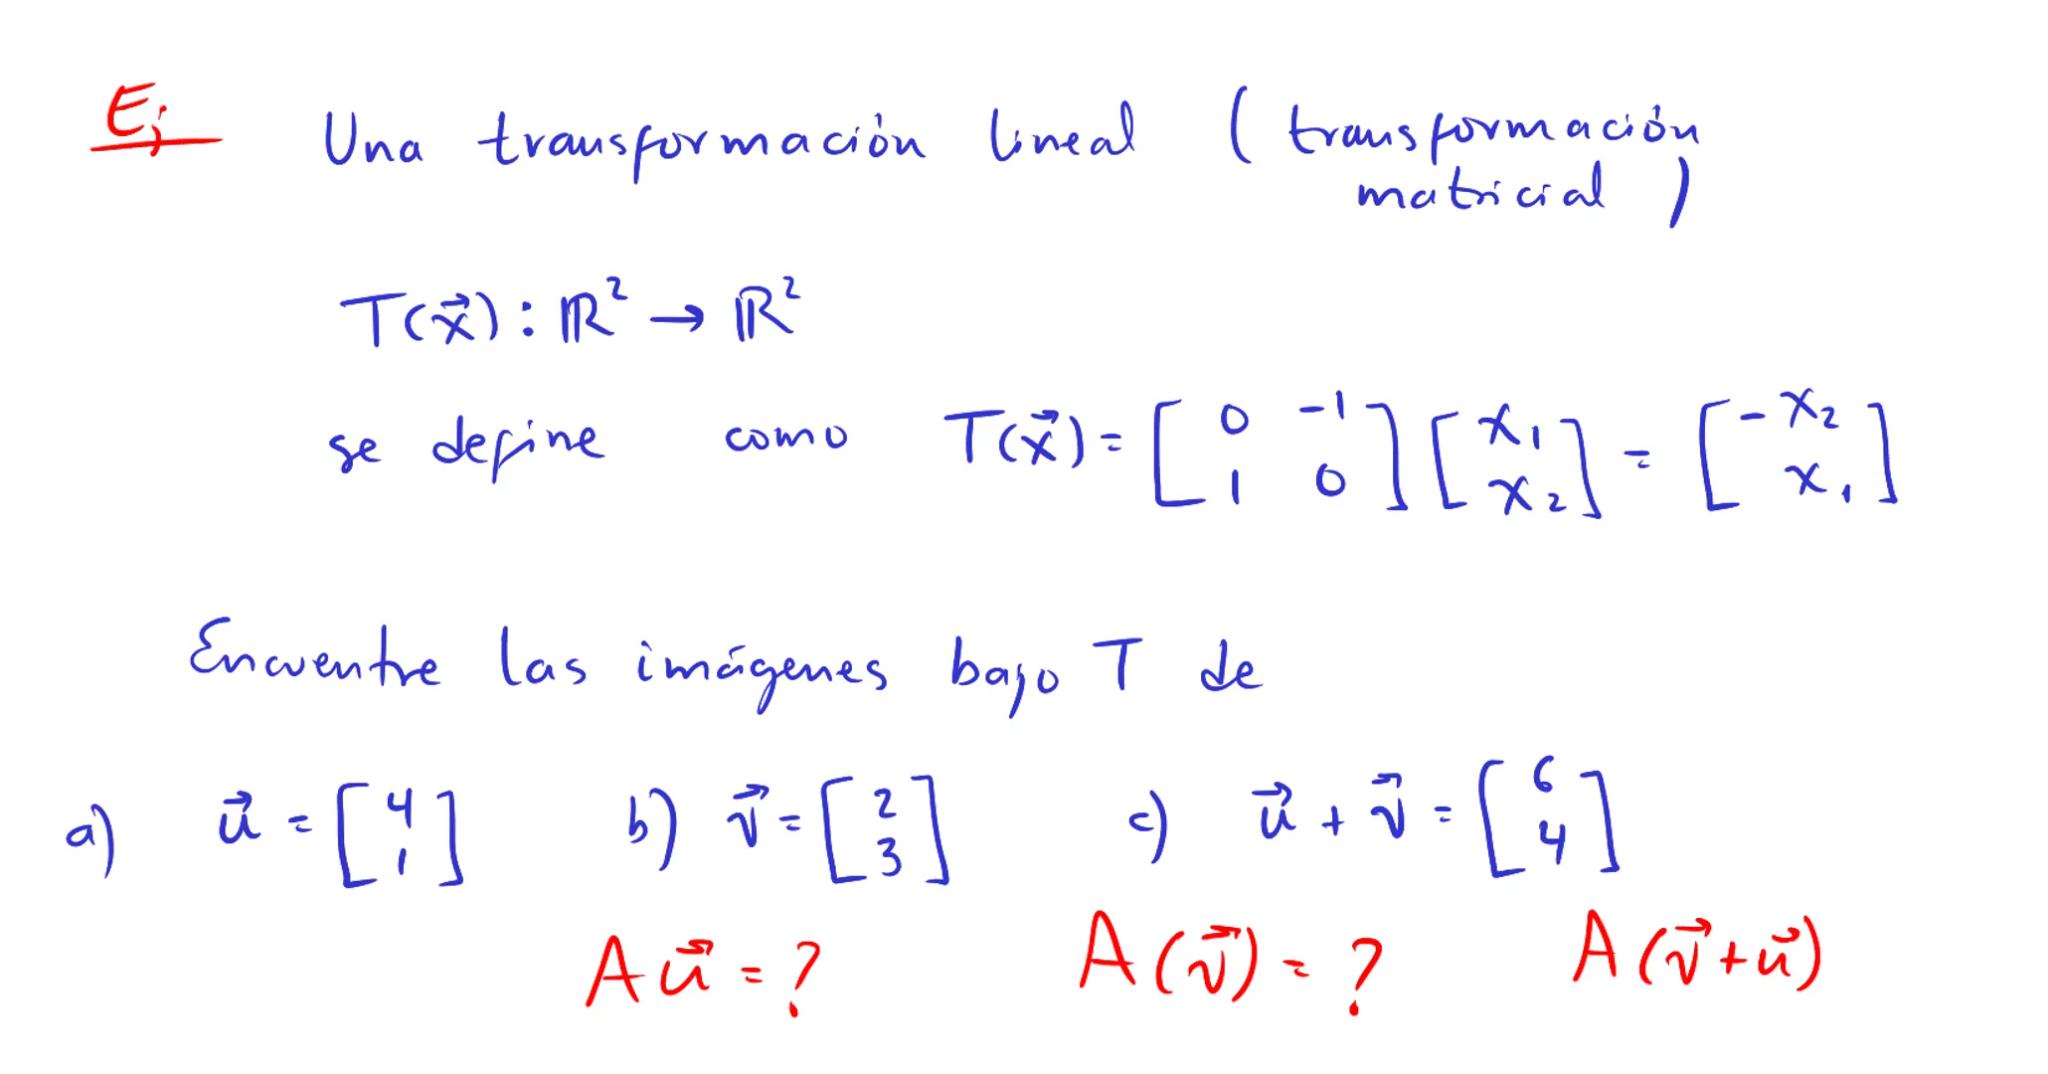 Ej Una transformación lineal (transformación
matricial)
T(x⃗): ℝ² → ℝ²
se define como T(x⃗) = [0 -1; 1 0] [x₁; x₂] = [-x₂; x₁]
Encuentre las imágenes bajo T de
a) u⃗ = [4; 1] b) v⃗ = [2; 3] c) u⃗ + v⃗ = [6; 4]
A u⃗ = ? A(v⃗) = ? A(v⃗ + u⃗)